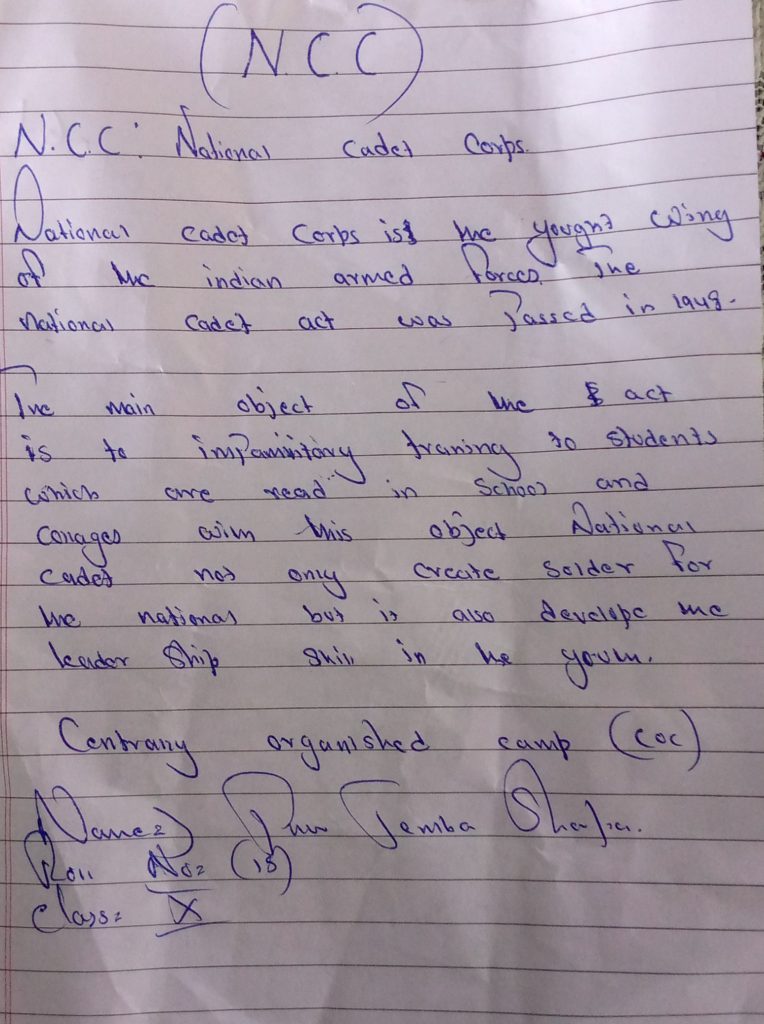 (N.C.C)
N.C.C: National Cadet Corps.
National cadet Corps is the yought wing
of the indian armed forces. The
national cadet act was passed in 1948.
The main object of the act
is to training to students
which are read in school and
conages with this object National
cadet not only create solder for
the national but it also develope the
leader ship skill in the youth.
Centrally organished camp (COC)
Name= Temba
Roll No= (18)
Class= IX